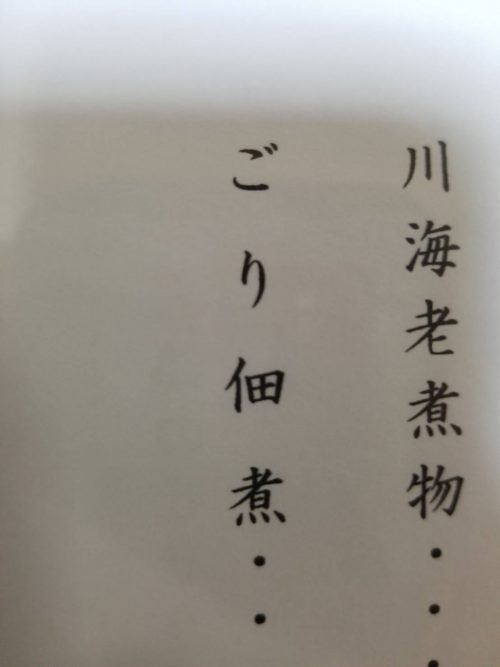 川海老煮物・・・
ごり佃煮・・